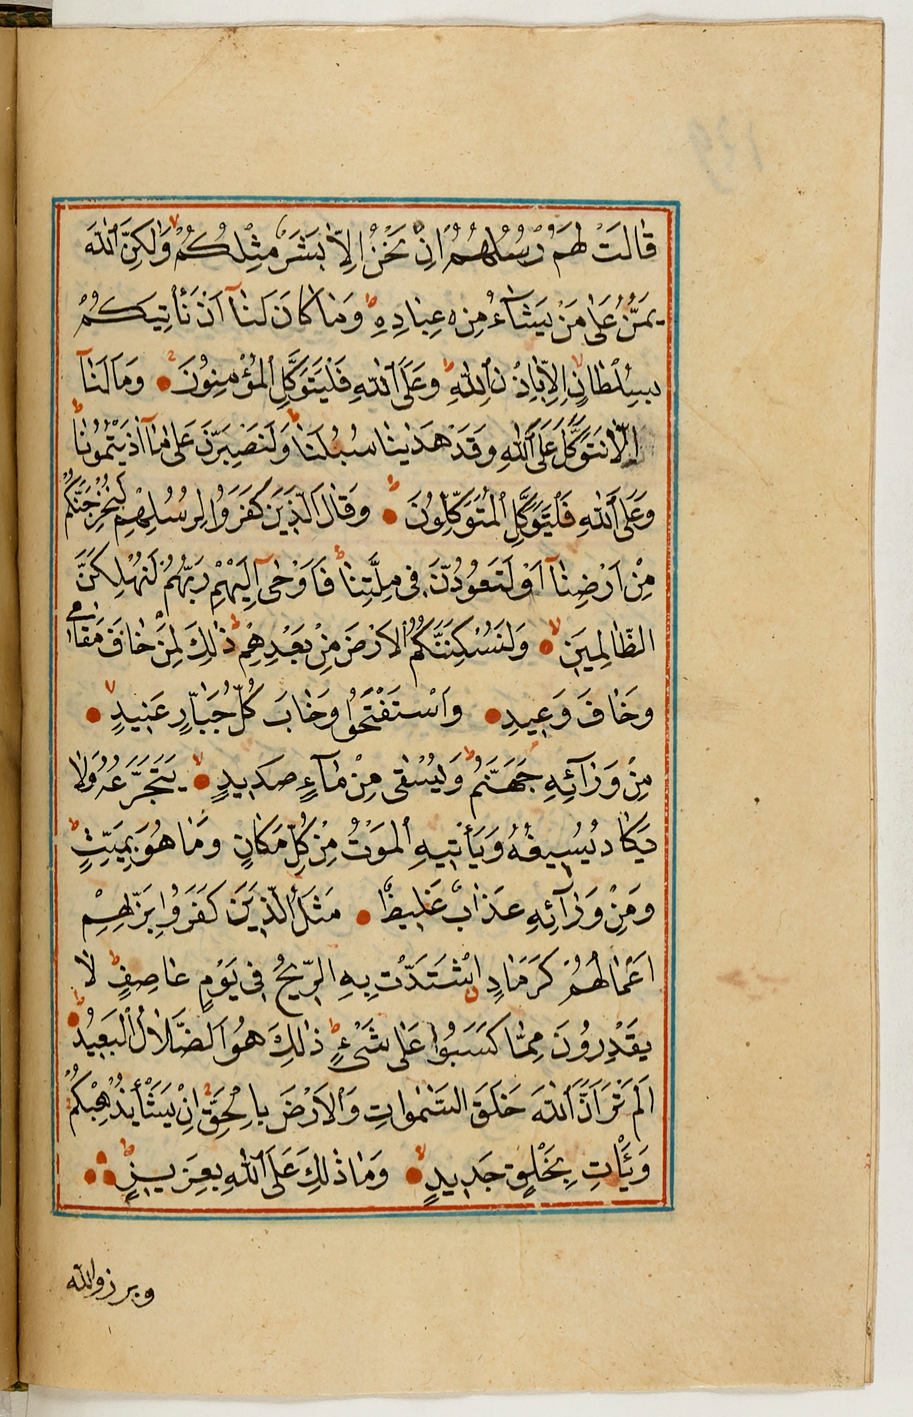 قَالَتْ لَهُمْ رُسُلُهُمْ اِنْ نَحْنُ اِلَّا بَشَرٌ مِثْلُكُمْ وَلٰكِنَّ اللّٰهَ
يَمُنُّ عَلٰى مَنْ يَشَآءُ مِنْ عِبَادِهِ وَمَا كَانَ لَنَآ اَنْ نَأْتِيَكُمْ
بِسُلْطَانٍ اِلَّا بِاِذْنِ اللّٰهِ وَعَلَى اللّٰهِ فَلْيَتَوَكَّلِ الْمُؤْمِنُونَ وَمَا لَنَآ
اَلَّا نَتَوَكَّلَ عَلَى اللّٰهِ وَقَدْ هَدٰينَا سُبُلَنَا وَلَنَصْبِرَنَّ عَلٰى مَآ اٰذَيْتُمُونَا
وَعَلَى اللّٰهِ فَلْيَتَوَكَّلِ الْمُتَوَكِّلُونَ وَقَالَ الَّذِينَ كَفَرُوا لِرُسُلِهِمْ لَنُخْرِجَنَّكُمْ
مِنْ اَرْضِنَآ اَوْ لَتَعُودُنَّ فِى مِلَّتِنَا فَاَوْحٰىٓ اِلَيْهِمْ رَبُّهُمْ لَنُهْلِكَنَّ
الظَّالِمِينَ وَلَنُسْكِنَنَّكُمُ الْاَرْضَ مِنْ بَعْدِهِمْ ذٰلِكَ لِمَنْ خَافَ مَقَامِى
وَخَافَ وَعِيدِ وَاسْتَفْتَحُوا وَخَابَ كُلُّ جَبَّارٍ عَنِيدٍ
مِنْ وَرَآئِهِ جَهَنَّمُ وَيُسْقٰى مِنْ مَآءٍ صَدِيدٍ يَتَجَرَّعُهُ وَلَا
يَكَادُ يُسِيغُهُ وَيَأْتِيهِ الْمَوْتُ مِنْ كُلِّ مَكَانٍ وَمَا هُوَ بِمَيِّتٍ
وَمِنْ وَرَآئِهِ عَذَابٌ غَلِيظٌ مَثَلُ الَّذِينَ كَفَرُوا بِرَبِّهِمْ
اَعْمَالُهُمْ كَرَمَادٍ اشْتَدَّتْ بِهِ الرِّيحُ فِى يَوْمٍ عَاصِفٍ لَا
يَقْدِرُونَ مِمَّا كَسَبُوا عَلٰى شَىْءٍ ذٰلِكَ هُوَ الضَّلَالُ الْبَعِيدُ
اَلَمْ تَرَ اَنَّ اللّٰهَ خَلَقَ السَّمٰوَاتِ وَالْاَرْضَ بِالْحَقِّ اِنْ يَشَأْ يُذْهِبْكُمْ
وَيَأْتِ بِخَلْقٍ جَدِيدٍ وَمَا ذٰلِكَ عَلَى اللّٰهِ بِعَزِيزٍ
وبرزوا لله